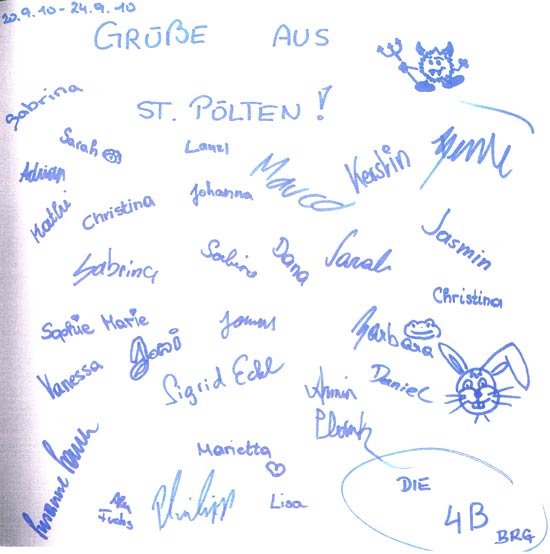 20.9.10 - 24.9.10
GRÜẞE AUS
ST. PÖLTEN!
Sabrina
Sarah
Lauzl
Adrian
Johanna
Marco
Kerstin
Kathi
Christina
Jasmin
Sabrina
Sabine
Dana
Sarah
Christina
Sophie Marie
Barbara
Vanessa
Sigrid Eckl
Armin
Daniel
Marietta
Fuchs
Philipp
Lisa
DIE
4B
BRG